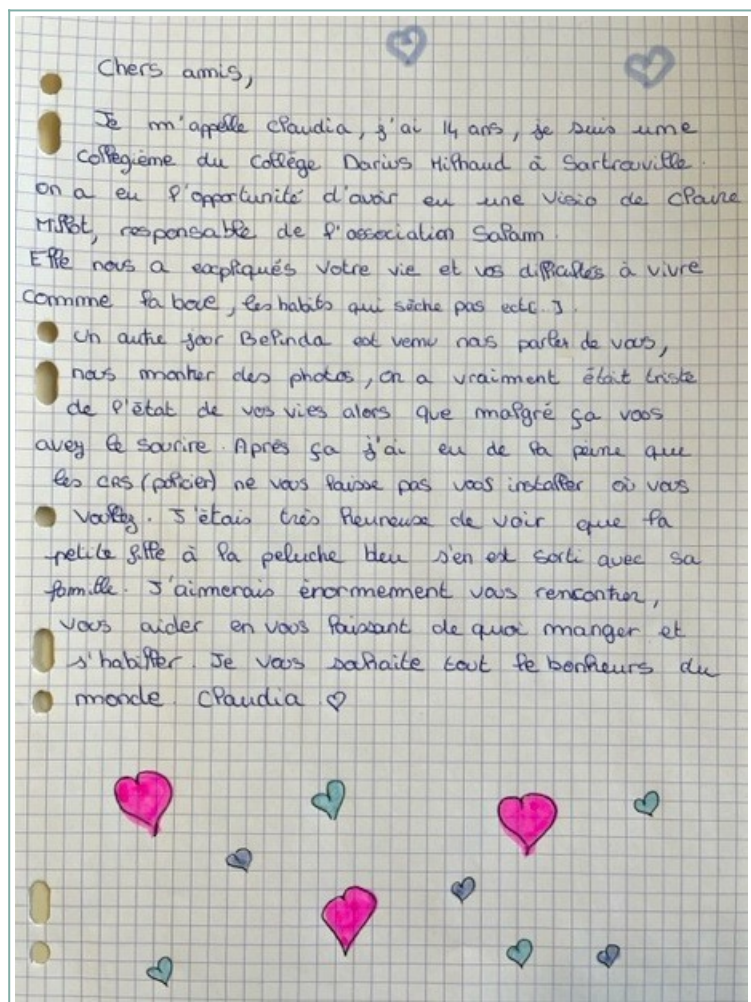 Chers amis,
Je m'appelle Claudia, j'ai 14 ans, je suis une
collégiène du Collège Darius Milhaud à Sartrouville.
on a eu l'opportunité d'avoir eu une visio de Claire
Millot, responsable de l'association Salam.
Elle nous a expliqués votre vie et vos difficultés à vivre
comme la boue, les habits qui sèche pas ect(...).
Un autre jour Belinda est venu nous parler de vous,
nous montrer des photos, on a vraiment était triste
de l'état de vos vies alors que malgré ça vous
avez le sourire. Après ça j'ai eu de la peine que
les CRS (policier) ne vous laisse pas vous installer où vous
voulez. J'étais très heureuse de voir que la
petite fille à la peluche bleu s'en est sorti avec sa
famille. J'aimerais énormement vous rencontrer,
vous aider en vous laissant de quoi manger et
s'habiller. Je vous souhaite tout le bonheurs du
monde. Claudia ♡